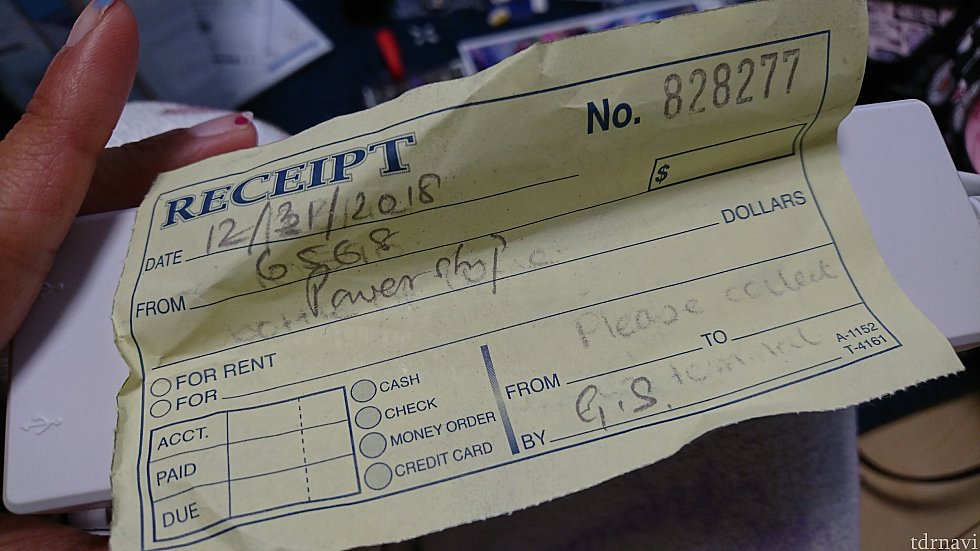 RECEIPT
No. 828277
DATE 12/31/2018
$
FROM 6568
DOLLARS
Power
Please collect
FOR RENT
FOR
FROM TO
BY G.S.
ACCT.
PAID
DUE
CASH
CHECK
MONEY ORDER
CREDIT CARD
A-1152
T-4161
tdrnavi